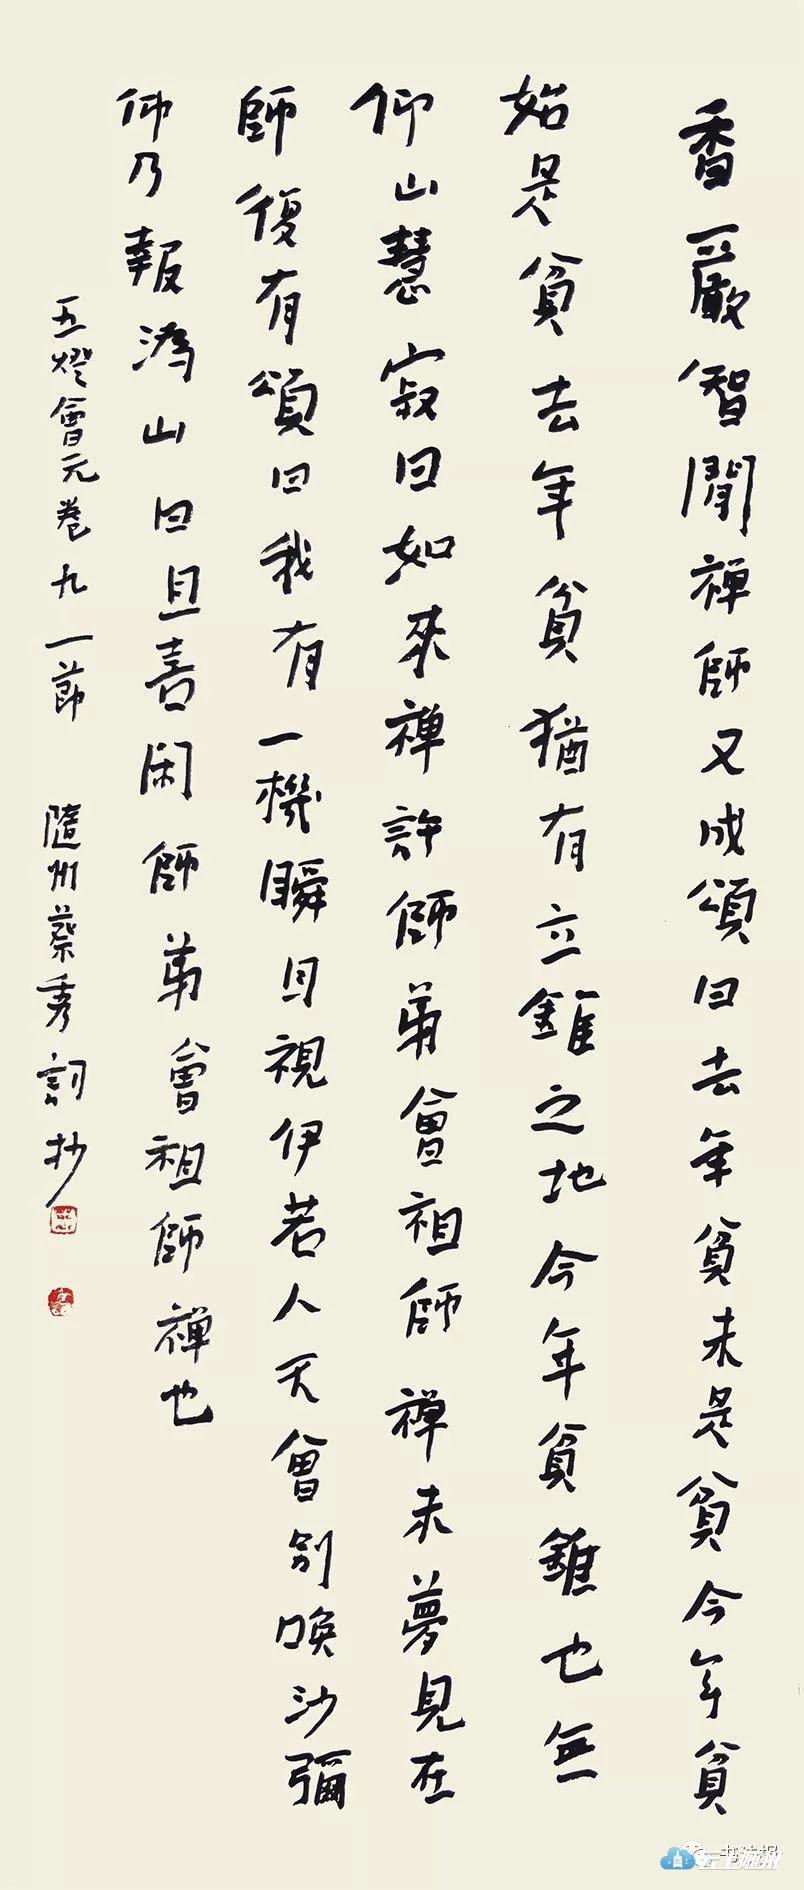 香嚴智閒禪師又成頌曰去年貧未是貧今年貧
始是貧去年貧猶有立錐之地今年貧錐也無
仰山慧寂曰如來禪許師弟會祖師禪未夢見在
師復有頌曰我有一機瞬目視伊若人不會別喚沙彌
仰乃報溈山曰且喜閑師弟會祖師禪也
五燈會元卷九一節 隨州蔡秀詞抄
云上随州